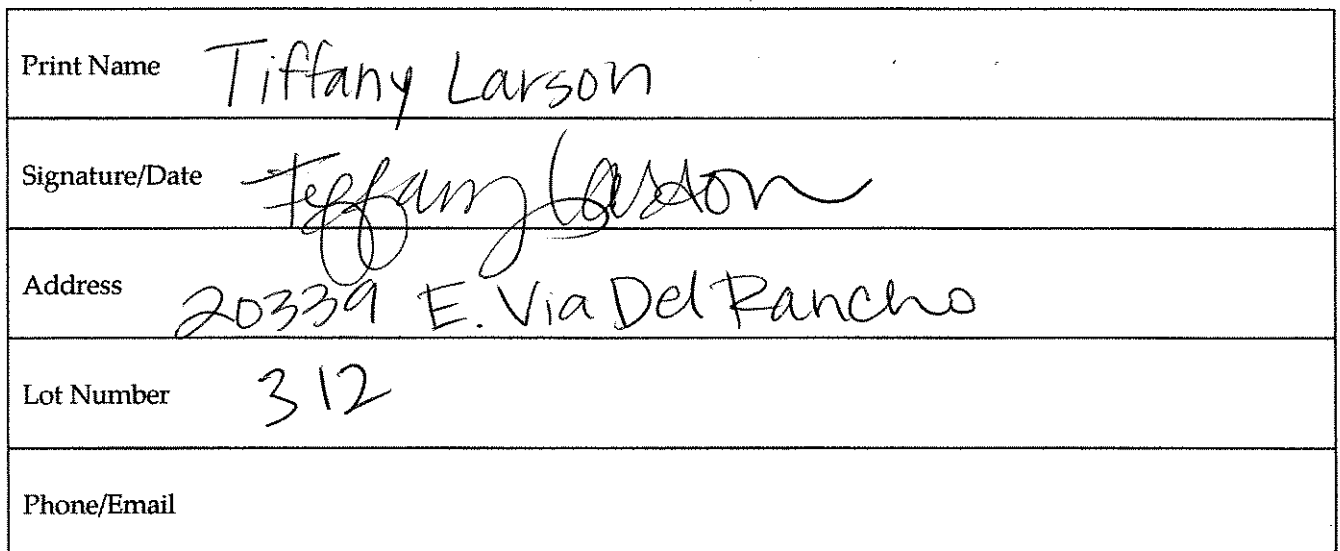 Print Name Tiffany Larson
Signature/Date Tiffany Larson
Address 20339 E. Via Del Rancho
Lot Number 312
Phone/Email